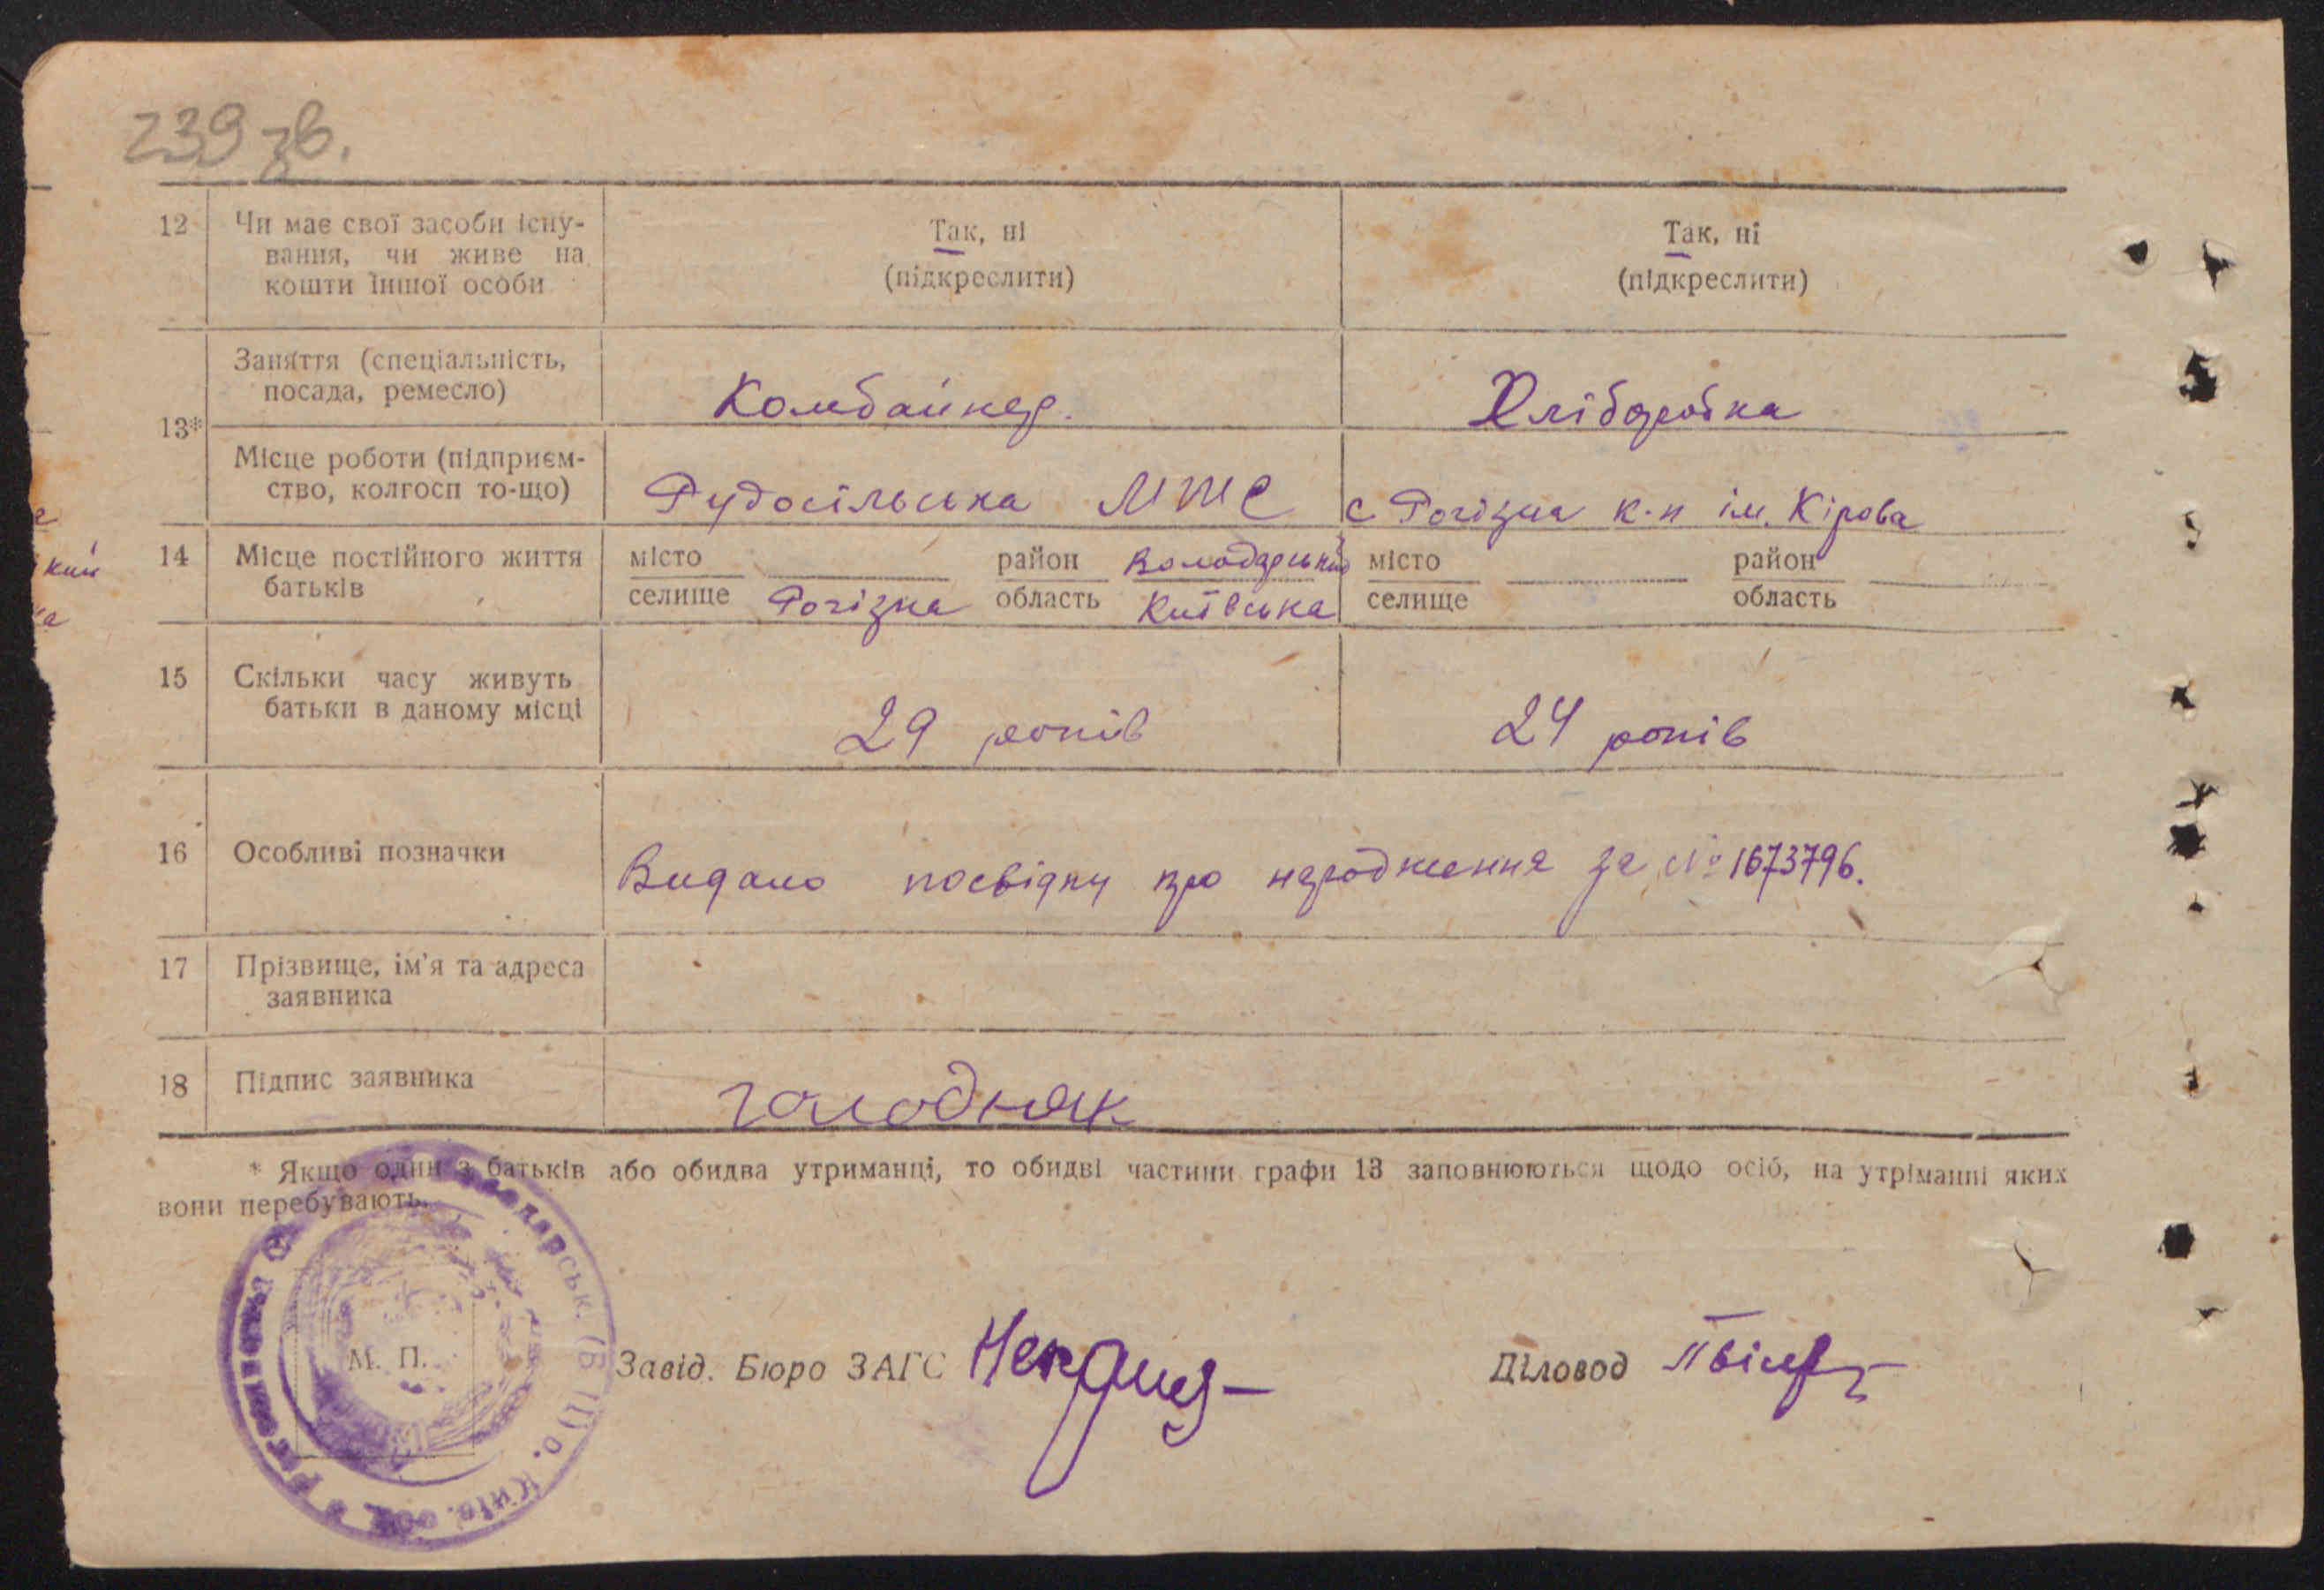 239 зв.
12 Чи має свої засоби існу-
вання, чи живе на
кошти іншої особи
Так, ні
(підкреслити)
Так, ні
(підкреслити)
13*
Заняття (спеціальність,
посада, ремесло)
Комбайнер.
Хліборобка
Місце роботи (підприєм-
ство, колгосп то-що)
Рудосільська МТС
с Рогізна к-п ім. Кірова
14 Місце постійного життя
батьків
місто район Володарський
селище Рогізна область Київська
місто район
селище область
15 Скільки часу живуть
батьки в даному місці
29 років
24 років
16 Особливі позначки
Видано посвідку про народження за № 1673796.
17 Прізвище, ім'я та адреса
заявника
18 Підпис заявника
голодняк
* Якщо один з батьків або обидва утриманці, то обидві частини графи 13 заповнюються щодо осіб, на утріманні яких
вони перебувають.
М. П.
Завід. Бюро ЗАГС
Діловод